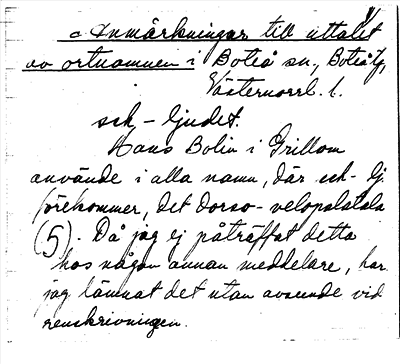 Anmärkningar till uttalet
av ortnamnen i Boteå sn., Boteå tg,
Västernorrl. l.
sch-ljudet.
Hans Bolin i Grillom
använde i alla namn, där sch-lj
förekommer, det dorso-velopalatala
(5). Då jag ej påträffat detta
hos någon annan meddelare, har
jag lämnat det utan avseende vid
renskrivningen.